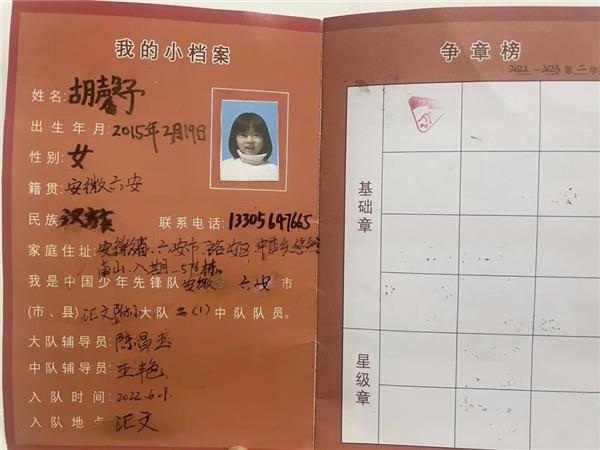 我的小档案
姓名:胡馨予
出生年月:2015年2月19日
性别:女
籍贯:安徽六安
民族:汉族 联系电话:13305647665
家庭住址:安徽省六安市
南山八期-5#6栋
我是中国少年先锋队安徽省六安市
(市、县)汇文 大队二(1)中队队员。
大队辅导员:陈昌玉
中队辅导员:王艳
入队时间:2022.6.1
入队地点:汇文
争章榜
2022-2023第二学
基础章
星级章